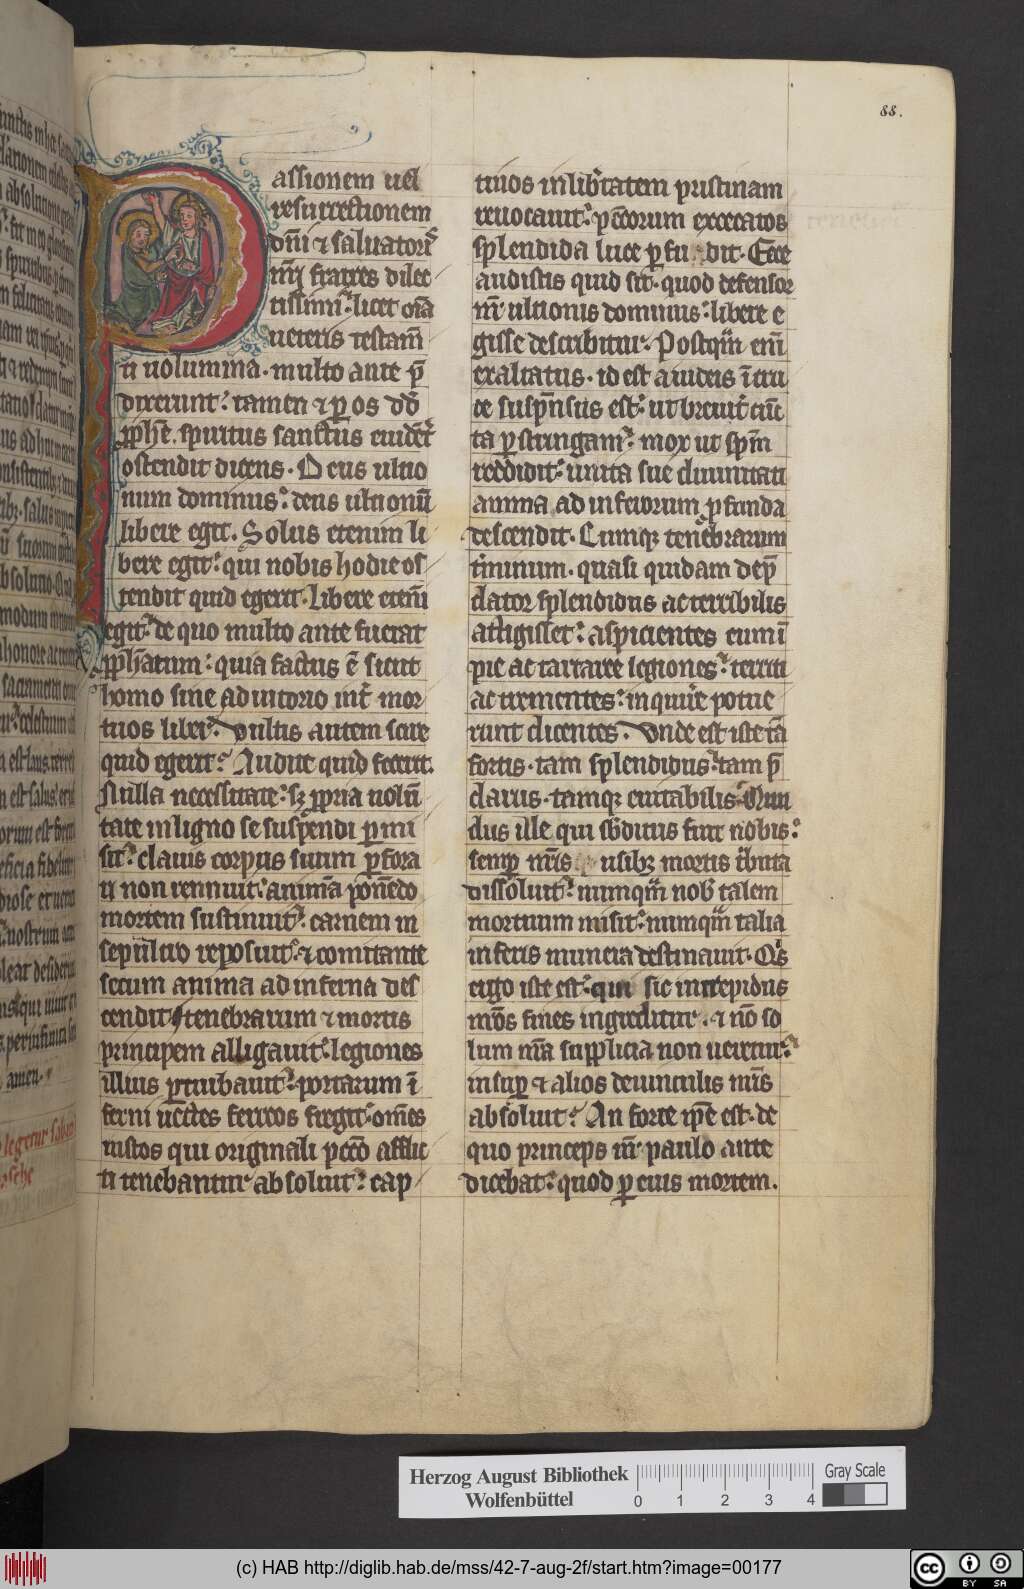 88.
Passionem uel
resurrectionem
dñi ⁊ saluatoris
nr̄i fratres dilec
tissimi. licet oīa
ueteris testam̄
ti uolumina. multo ante p̄
dixerunt. tamen ⁊ ꝑ os dd̄
ꝓphē. spiritus sanctus euidēt᷑
ostendit dicens. Deus ultio
num dominus. deus ultionū
libere egit. Solus etenim li
bere egit. qui nobis hodie os
tendit quid egerit. Libere eteñi
egit. de quo multo ante fuerat
ꝓphatum. quia factus ē sicut
homo sine adiutorio int᷑ mor
tuos liber. Vultis autem scire
quid egerit? Audite quid fecerit.
Nulla necessitate. sꝫ ꝓpria uolū
tate in ligno se suspendi ꝑmi
sit. clauis corpus suum ꝑfora
ri non rennuit. animā ponēdo
mortem sustinuit. carnem in
sepulcro reposuit. ⁊ comitante
secum anima ad inferna des
cendit. tenebrarum ⁊ mortis
principem alligauit. legiones
illius ꝑturbauit. portarum ī
ferni uectes ferreos fregit. om̄es
iustos qui originali pccō afflic
ti tenebantur absoluit. cap
tiuos in lib᷑tatem pristinam
reuocauit. pcc̄orum excecatos
splendida luce ꝑfudit. Ecce
audistis quid sit. quod defensor
nr̄ ultionis dominus. libere e
gisse describitur. Postqm̄ eni
exaltatus. id est a iudeis ī cru
ce suspēnsus est. ut breuit᷑ cūc
ta ꝑstringam. mox ut spm̄
reddidit. unita sue diuinitati
anima ad inferorum ꝓfunda
descendit. Cumqꝫ tenebrarum
t᷑minum. quasi quidam dep̄
dator splendidus ac terribilis
attigisset. aspicientes eum ī
pie ac tartaree legiones. territi
ac trementes. inquir᷑e potue
runt dicentes. Vnde est iste tā
fortis. tam splendidus. tam p̄
clarus. tamqꝫ euitabilis. Mun
dus ille qui sb̄ditus fuit nobis.
semp nr̄is usibꝫ mortis t᷑buta
dissoluit. numqm̄ nob̄ talem
mortuum misit. numqm̄ talia
inferis munera destinauit. Qͥs
ergo iste est. qui sic intrepidus
nr̄os fines ingreditur. ⁊ nō so
lum nr̄a supplicia non ueretur.
insuꝑ ⁊ alios deuinculis nr̄is
absoluit? An forte ip̄e est. de
quo princeps nr̄ paulo ante
dicebat. quod ꝑ eius mortem.
Herzog August Bibliothek
Wolfenbüttel
0 1 2 3 4
Gray Scale
(c) HAB http://diglib.hab.de/mss/42-7-aug-2f/start.htm?image=00177
cc BY SA